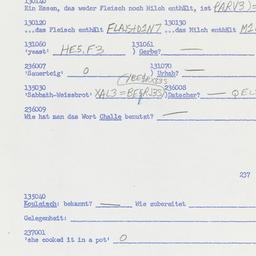 130140
Ein Essen, das weder Fleisch noch Milch enthält, ist (PARV3)=
130120 130130
...das Fleisch enthält FLAISHDINT ...das Milch enthält MI
131060 131061
'yeast' HE5,F3 ) Gerbe? —
236007 131070
'Sauerteig' O ) Urhab? —
135030 236008
'Sabbath-Weissbrot' XAL3= )Datscher? — QEL
236009
Wie hat man das Wort Challe benutzt? —
237
135040
Koulaisch: bekannt? — Wie zubereitet
Gelegenheit:
237001
'she cooked it in a pot' O